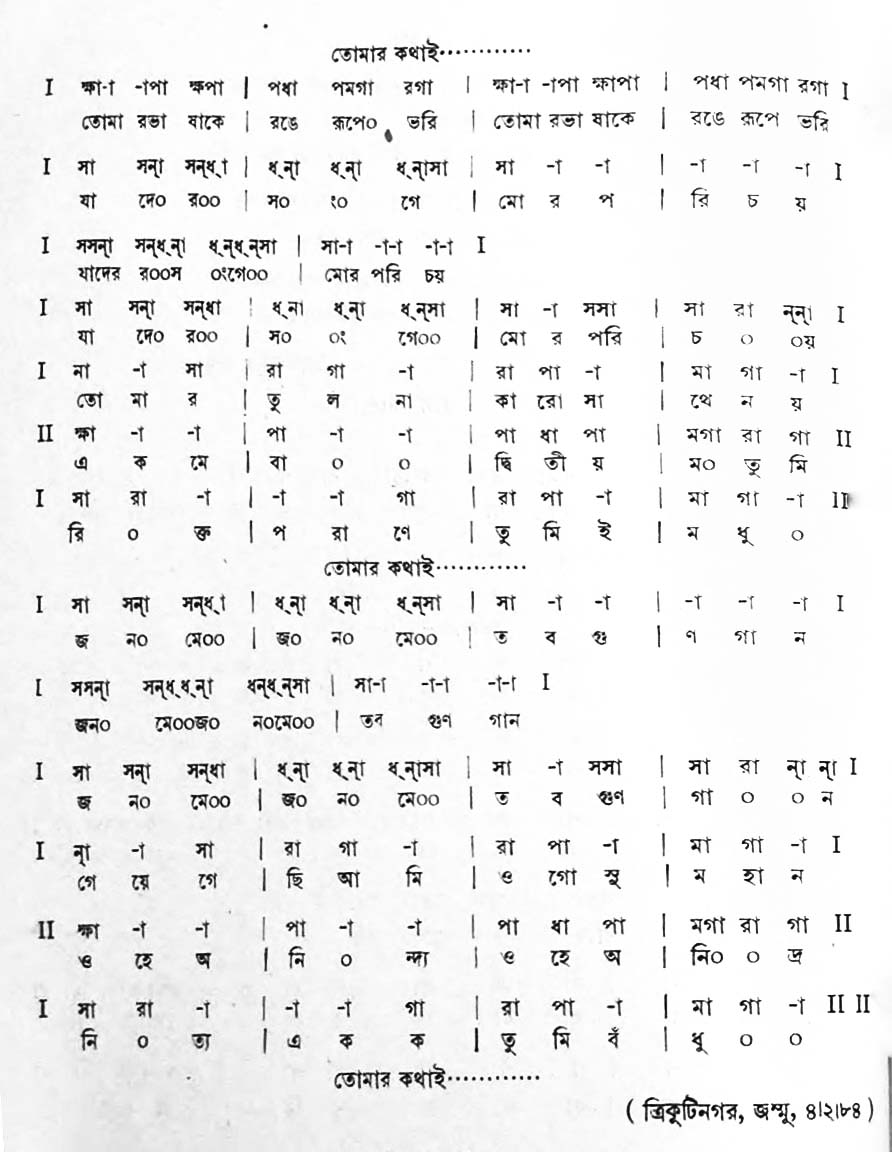 তোমার কথাই············
I ক্ষা-া -াপা ক্ষপা | পধা পমগা রগা | ক্ষা-া -াপা ক্ষাপা | পধা পমগা রগা I
তোমা রভা ষাকে | রঙে রূপে০ ভরি | তোমা রভা ষাকে | রঙে রূপে ভরি
I সা সন়া সন়ধ়া | ধ়ন়া ধ়ন়া ধ়ন়াসা | সা -া -া | -া -া -া I
যা দে০ র০০ | স০ ং০ গে | মো র প | রি চ য়
I সসন়া সন়ধ়ন়া ধ়ন়ধ়ন়সা | সা-া -া-া -া-া I
যাদের র০০স ০ংগে০০ | মোর পরি চয়
I সা সন়া সন়ধা | ধ়না ধ়ন়া ধ়ন়সা | সা -া সসা | সা রা ন়ন়া I
যা দে০ র০০ | স০ ০ং গে০০ | মো র পরি | চ ০ ০য়
I না -া সা | রা গা -া | রা পা -া | মা গা -া I
তো মা র | তু ল না | কা রো সা | থে ন য়
II ক্ষা -া -া | পা -া -া | পা ধা পা | মগা রা গা II
এ ক মে | বা ০ ০ | দ্বি তী য় | ম০ তু মি
I সা রা -া | -া -া গা | রা পা -া | মা গা -া II
রি ০ ক্ত | প রা ণে | তু মি ই | ম ধু ০
তোমার কথাই············
I সা সন়া সন়ধ়া | ধ়ন়া ধ়ন়া ধ়ন়সা | সা -া -া | -া -া -া I
জ ন০ মে০০ | জ০ ন০ মে০০ | ত ব গু | ণ গা ন
I সসনা সন়ধ়ধ়ন়া ধন়ধ়ন়সা | সা-া -া-া -া-া I
জন০ মে০০জ০ ন০মে০০ | তব গুণ গান
I সা সন়া সন়ধা | ধ়ন়া ধ়ন়া ধ়ন়াসা | সা -া সসা | সা রা ন়া ন়া I
জ ন০ মে০০ | জ০ ন০ মে০০ | ত ব গুণ | গা ০ ০ ন
I ন়া -া সা | রা গা -া | রা পা -া | মা গা -া I
গে য়ে গে | ছি আ মি | ও গো সু | ম হা ন
II ক্ষা -া -া | পা -া -া | পা ধা পা | মগা রা গা II
ও হে অ | নি ০ ন্দ্য | ও হে অ | নি০ ০ দ্র
I সা রা -া | -া -া গা | রা পা -া | মা গা -া II II
নি ০ ত্য | এ ক ক | তু মি বঁ | ধু ০ ০
তোমার কথাই············
( ত্রিকুটিনগর, জম্মু, ৪।২।৮৪ )